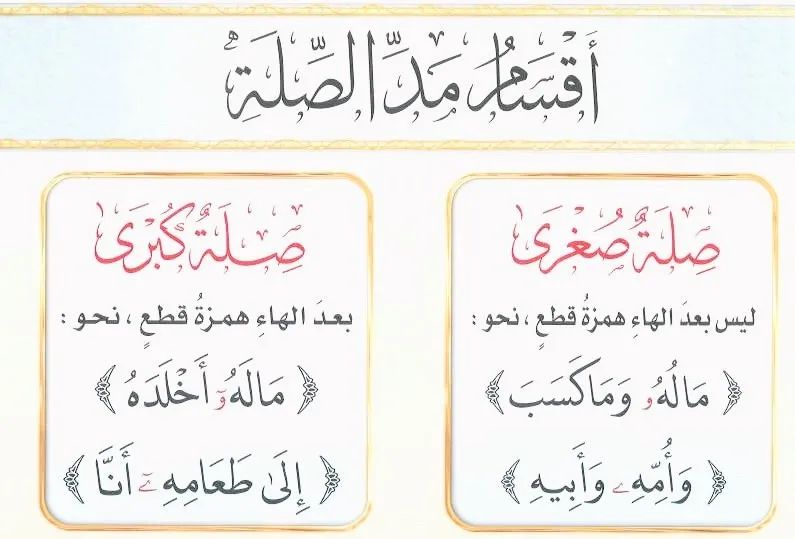 أَقْسَامُ مَدِّ الصِّلَةِ
صِلَةٌ صُغْرَى
ليس بعدَ الهاءِ همزةُ قطعٍ ، نحو :
﴿ مَالُهُۥ وَمَاكَسَبَ ﴾
﴿ وَأُمِّهِۦ وَأَبِيهِ ﴾
صِلَةٌ كُبْرَى
بعدَ الهاءِ همزةُ قطعٍ ، نحو :
﴿ مَالَهُۥٓ أَخْلَدَهُ ﴾
﴿ إِلَىٰ طَعَامِهِۦٓ أَنَّا ﴾